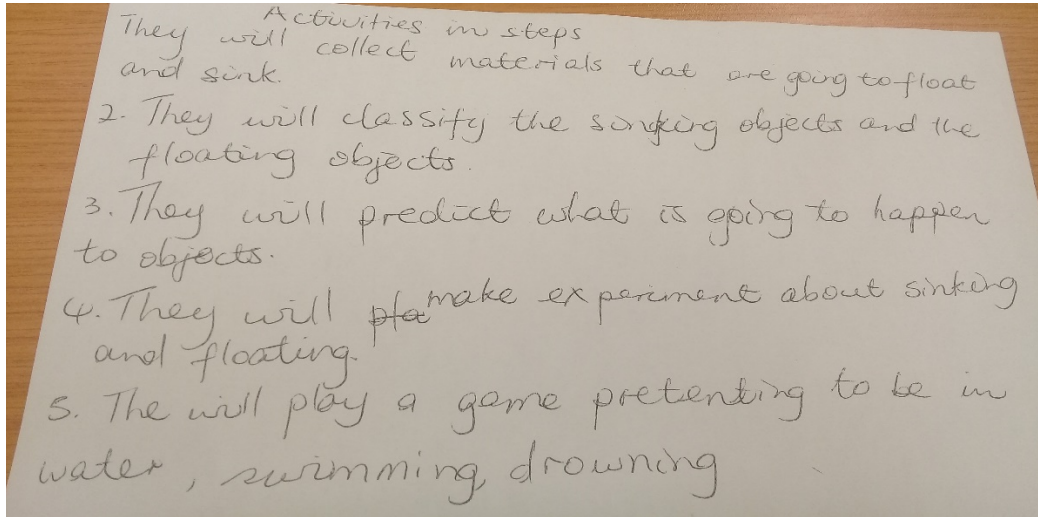 Activities in steps
They will collect materials that are going to float
and sink.
2. They will classify the singking objects and the
floating objects.
3. They will predict what is going to happen
to objects.
4. They will pla make experiment about sinking
and floating.
5. The will play a game pretenting to be in
water, swimming, drowning